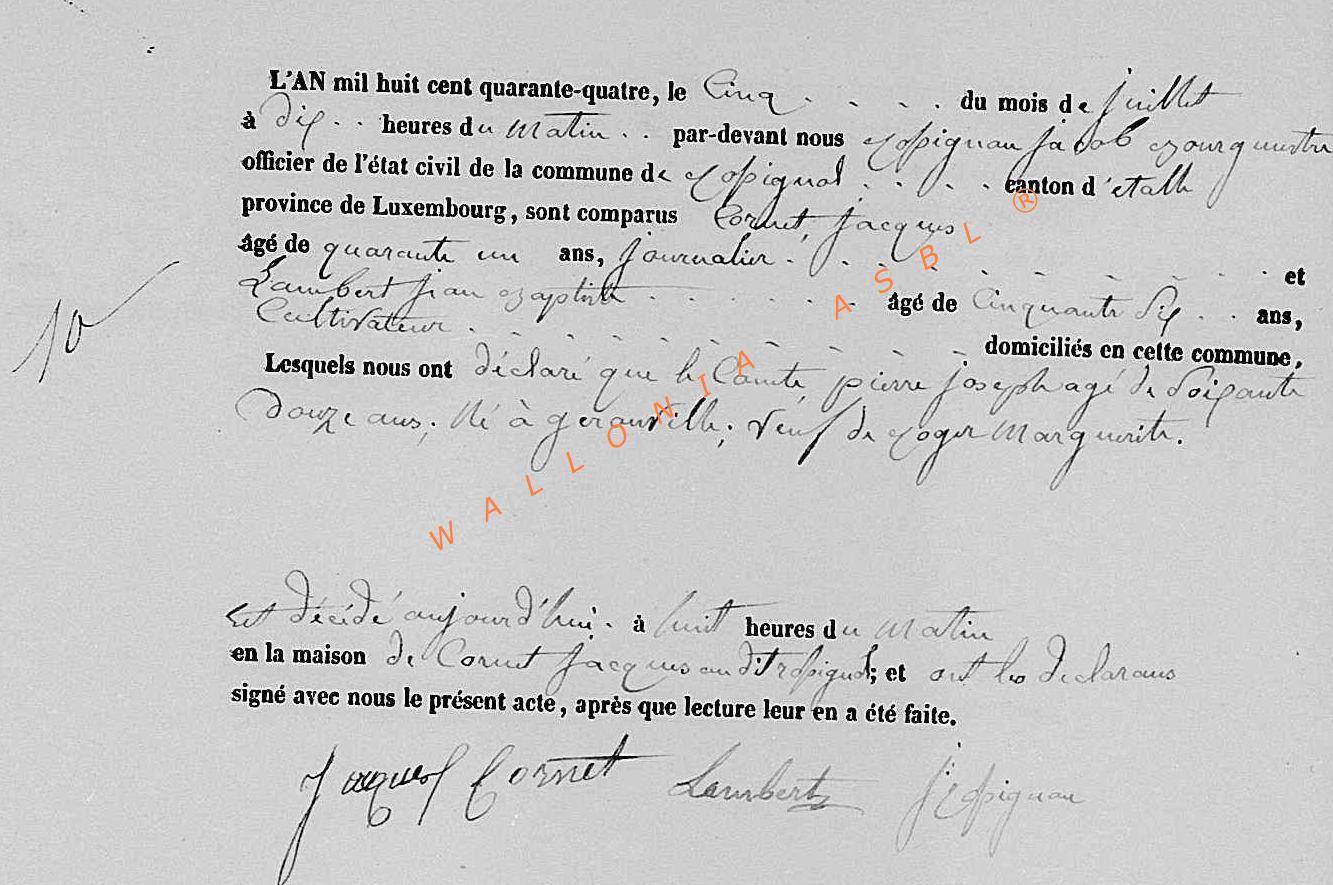 L'AN mil huit cent quarante-quatre, le Cinq . . . . du mois de juillet
à dix . . heures du matin . . par-devant nous Rossignon Jacob Bourgmestre
officier de l'état civil de la commune de Rossignol . . . . canton d'etalle
province de Luxembourg, sont comparus Cornet, Jacques
âgé de quarante un ans, journalier . . . . . . . . . et
Lambert jean Baptiste . . . . . . . âgé de Cinquante six . . ans,
Cultivateur . . . . . . . . . domiciliés en cette commune,
10
Lesquels nous ont déclaré que le Comte, pierre joseph agé de soixante
douze ans, né à gerouville, veuf de Roger Marguerite.
Est décédé aujourd'hui . à huit heures du matin
en la maison de Cornet jacques audit rossignol; et ont les declarans
signé avec nous le présent acte, après que lecture leur en a été faite.
Jacques Cornet Lambert
WALLONIA ASBL ®